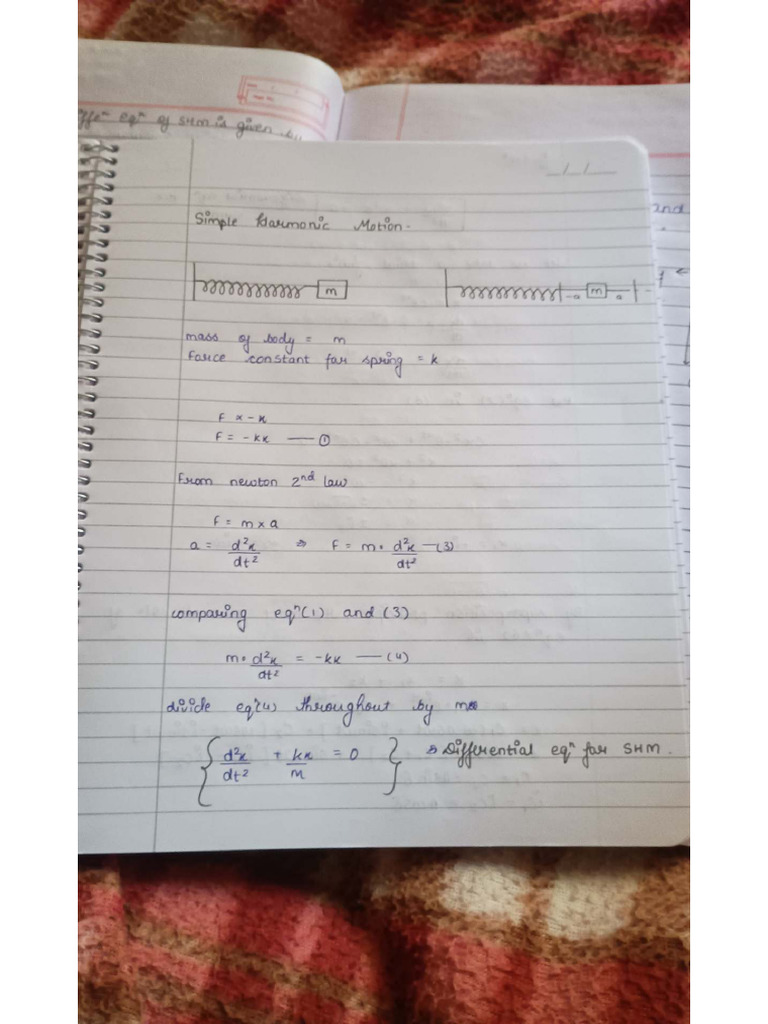 eqⁿ of SHM is given by
_/_/_
Simple Harmonic Motion-
m
-a m a
mass of body = m
Force constant for spring = k
F ∝ -x
F = -kx —— ①
From newton 2nd law
F = m × a
a = d²x/dt² ⇒ F = m · d²x/dt² —(3)
comparing eqⁿ(1) and (3)
m · d²x/dt² = -kx —— (4)
divide eqⁿ(4) throughout by m
{ d²x/dt² + kx/m = 0 } Differential eqⁿ for SHM.